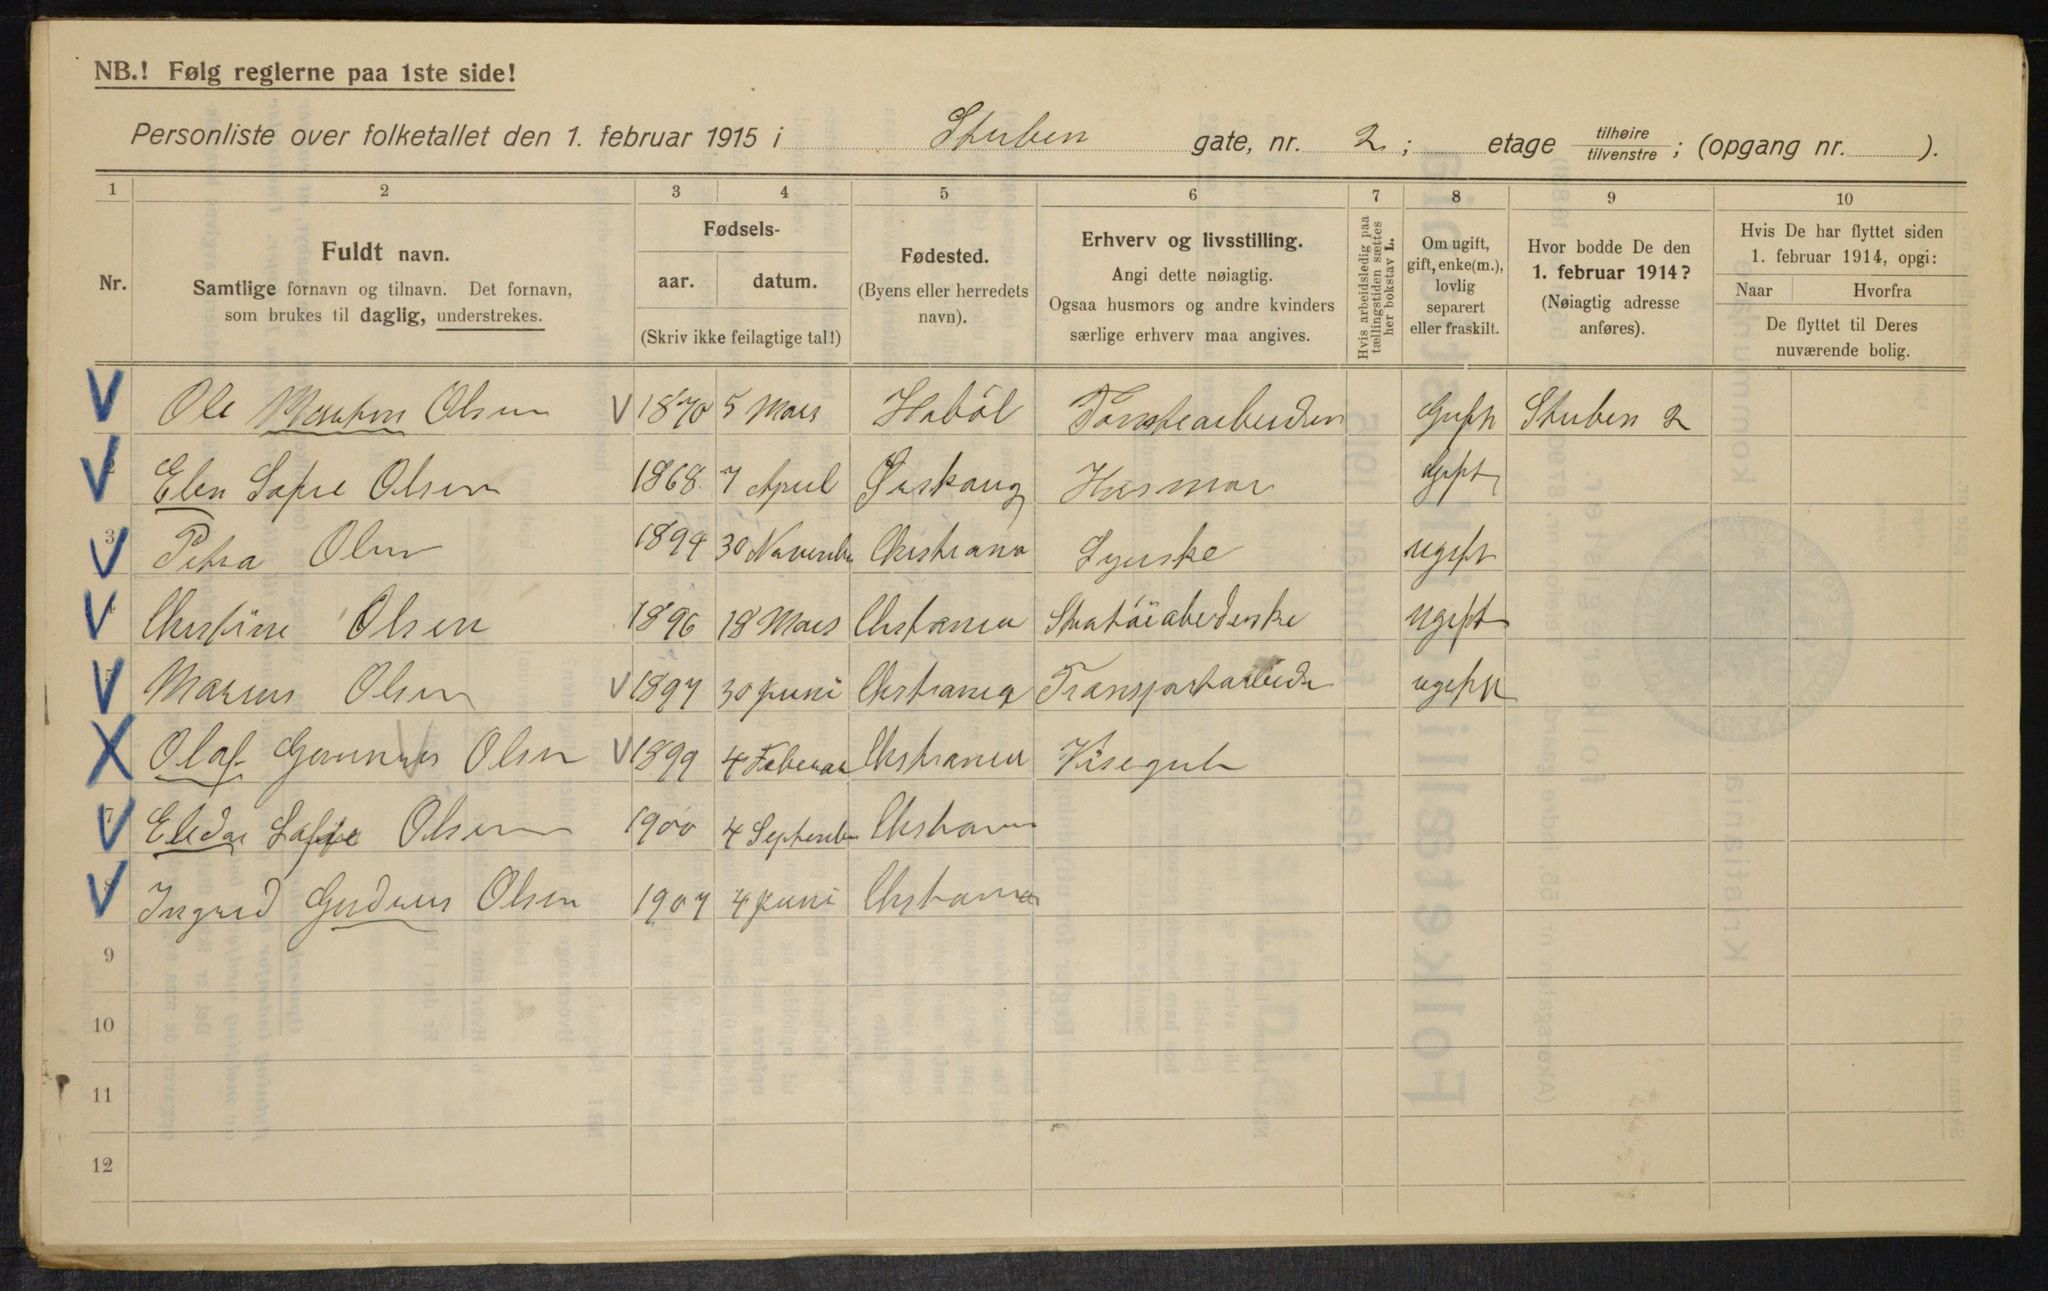 NB.! Følg reglerne paa 1ste side!
Personliste over folketallet den 1. februar 1915 i Stuben gate, nr. 2 ; etage tilhøire / tilvenstre ; (opgang nr. ).
1 2 3 4 5 6 7 8 9 10
Nr. Fuldt navn. Samtlige fornavn og tilnavn. Det fornavn, som brukes til daglig, understrekes.
Fødsels- aar. datum. (Skriv ikke feilagtige tal!)
Fødested. (Byens eller herredets navn).
Erhverv og livsstilling. Angi dette nøiagtig. Ogsaa husmors og andre kvinders særlige erhverv maa angives.
Hvis arbeidsledig paa tællingstiden sættes her bokstav L.
Om ugift, gift, enke(m.), lovlig separert eller fraskilt.
Hvor bodde De den 1. februar 1914? (Nøiagtig adresse anføres).
Hvis De har flyttet siden 1. februar 1914, opgi: Naar Hvorfra De flyttet til Deres nuværende bolig.
Ole Olsen 1870 5 Mars Haböl Gift Stuben 2
2 Elen Safie Olsen 1868 7 April Husmor gift
3 Petra Olsen 1894 30 November Christiania Syerske ugift
4 Christine Olsen 1896 18 Mars ugift
5 Marius Olsen 1897 30 Juni Transportarbeider ugift
Olaf Gunnerius Olsen 1899 4 Februar Visergut
7 Olsen 1900 4 September
8 Ingrid Gudrun Olsen 1907 4 Juni
9
10
11
12